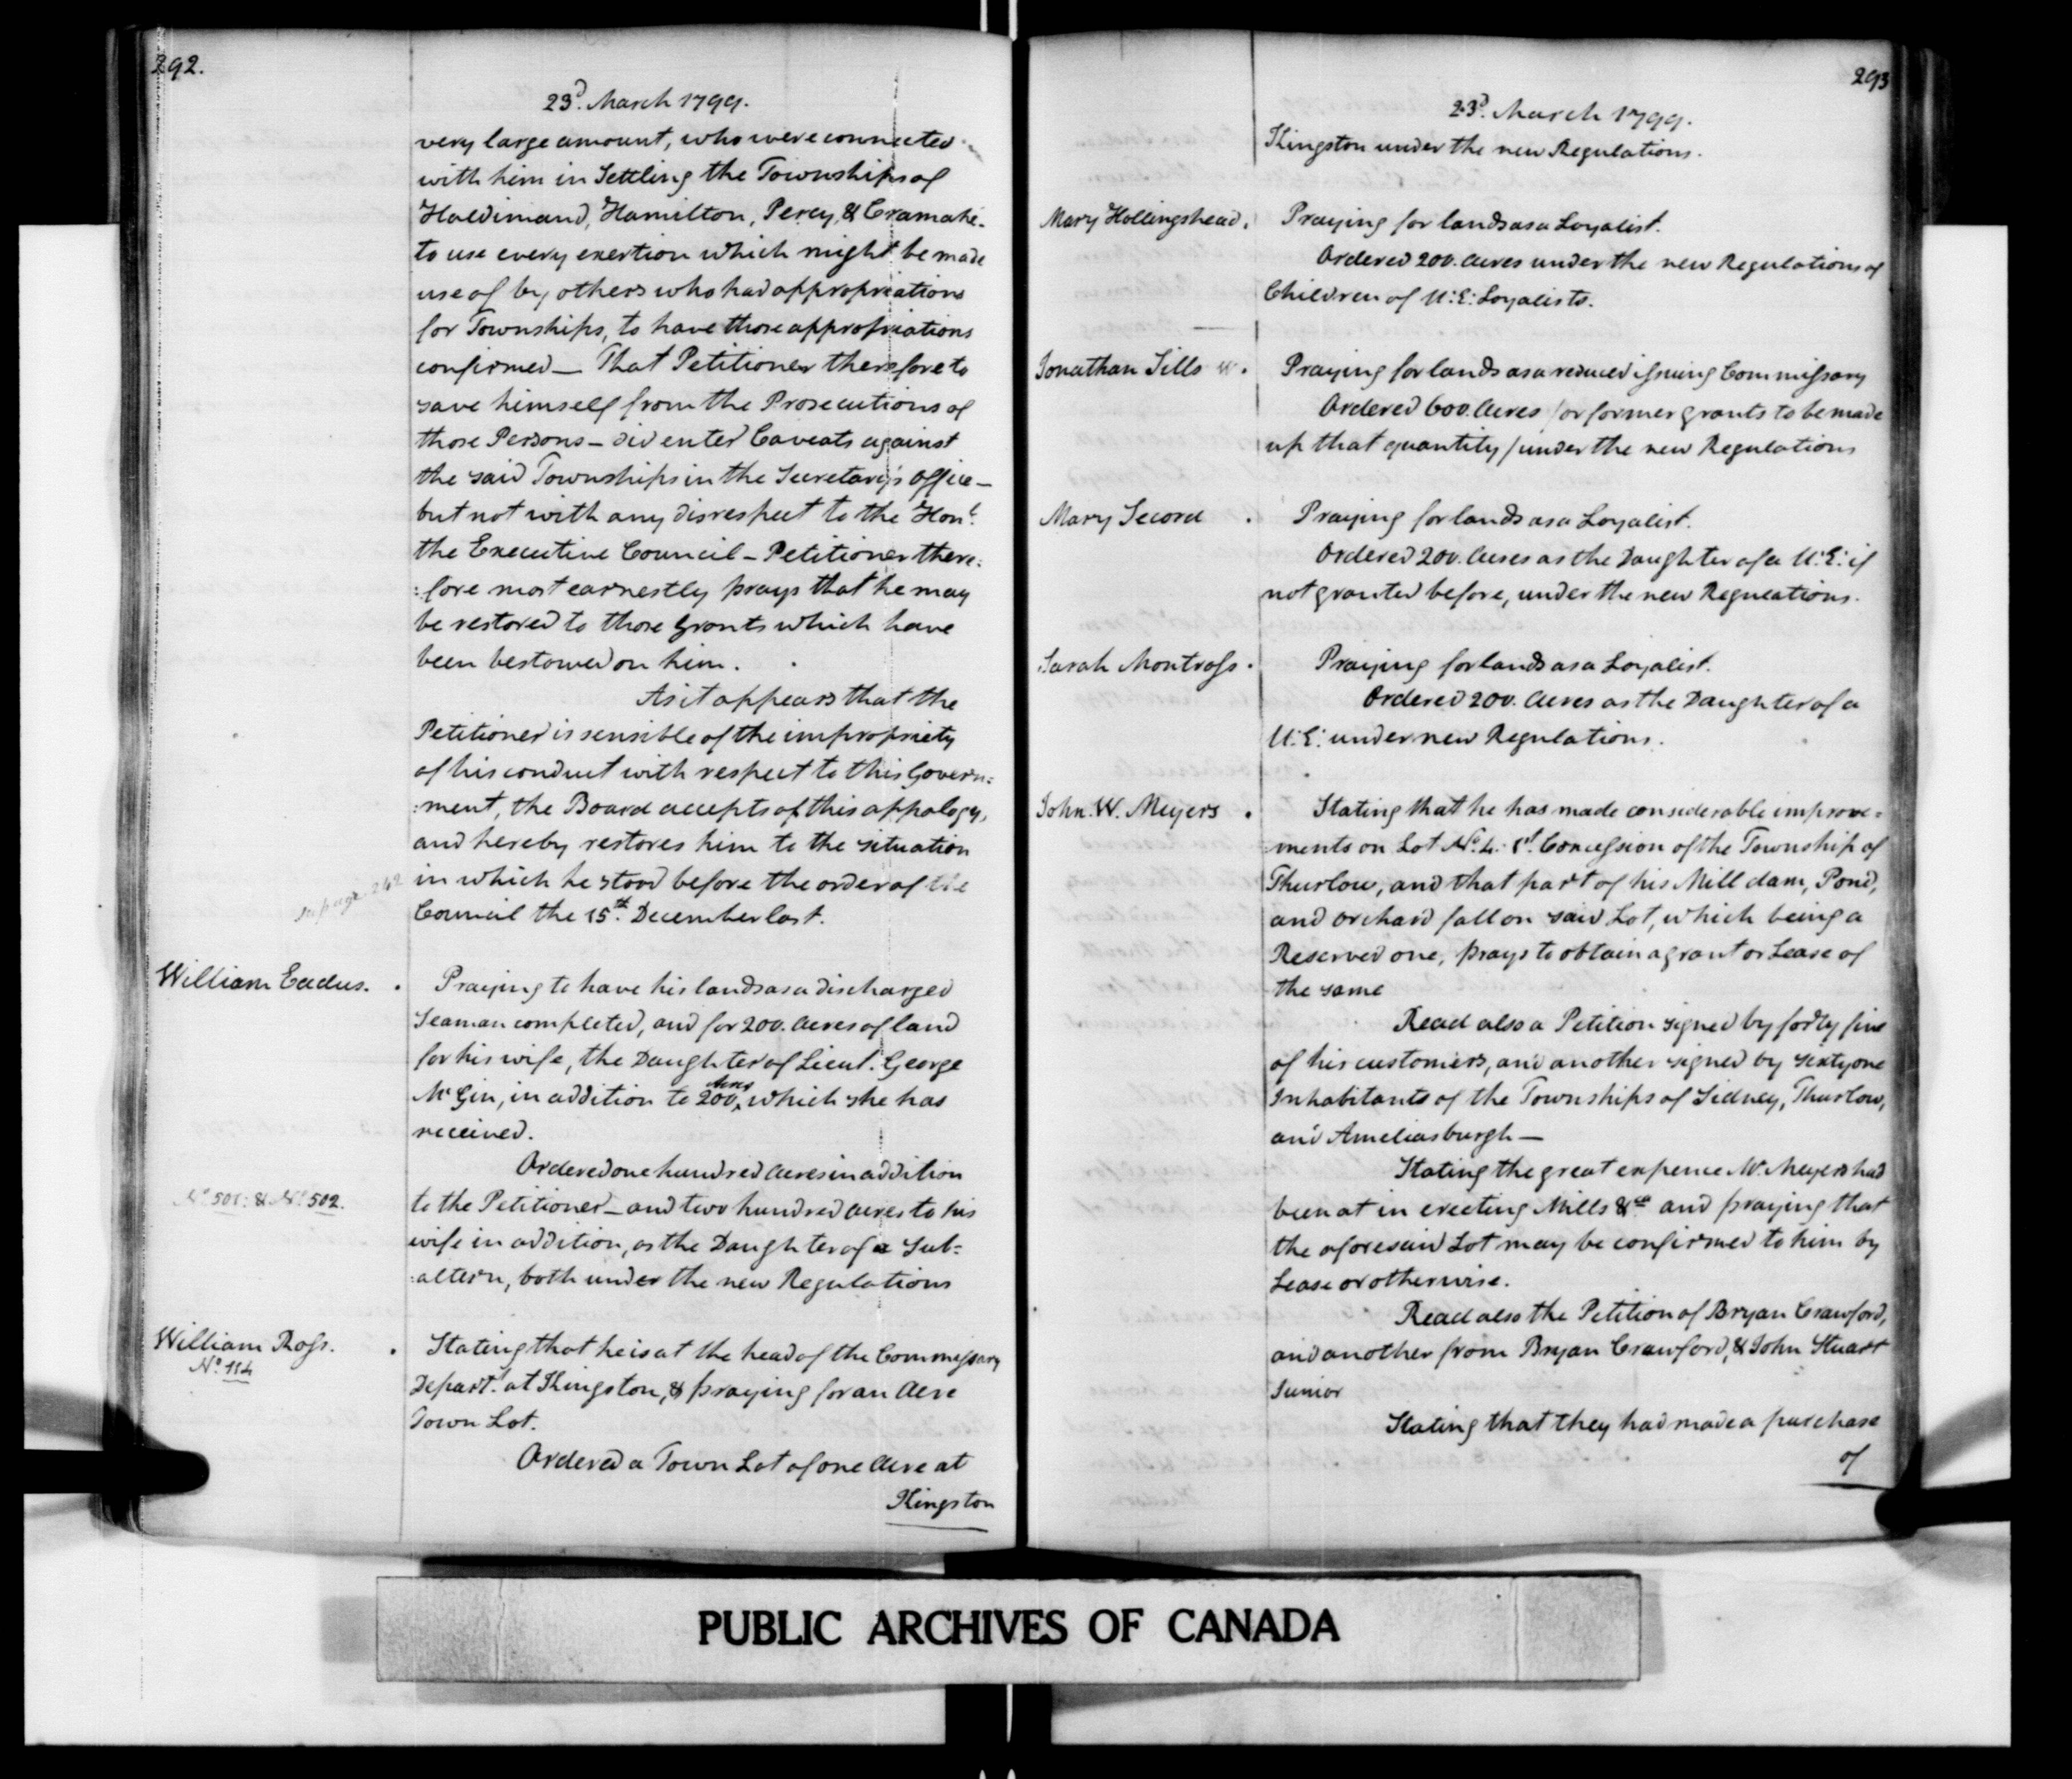 292.
23d. March 1799.
very large amount, who were connected
with him in Settling the Townships of
Haldimand, Hamilton, Percy, & Cramahé.
to use every exertion which might be made
use of by others who had appropriations
for Townships, to have those appropriations
confirmed — That Petitioner therefore to
save himself from the Prosecutions of
those Persons — did enter Caveats against
the said Townships in the Secretary's office —
but not with any disrespect to the Honl.
the Executive Council — Petitioner there:
:fore most earnestly prays that he may
be restored to those Grants which have
been bestowed on him.
As it appears that the
Petitioner is sensible of the impropriety
of his conduct with respect to this Govern:
:ment, the Board accepts of this appology,
and hereby restores him to the situation
in which he stood before the order of the
Council the 15th. December last.
page 242
William Eadus.
Praying to have his lands as a discharged
Seaman completed, and for 200. Acres of land
for his wife, the Daughter of Lieut. George
McGin, in addition to 200 Acres, which she has
received.
Ordered one hundred Acres in addition
No. 501: & No. 502.
to the Petitioner — and two hundred acres to his
wife in addition, as the Daughter of a Sub-
:altern, both under the new Regulations
William Ross.
No. 114
Stating that he is at the head of the Commissary
Depart. at Kingston, & praying for an Acre
Town Lot.
Ordered a Town Lot of one Acre at
Kingston
293
23d. March 1799.
Kingston under the new Regulations.
Mary Hollingshead.
Praying for lands as a Loyalist.
Ordered 200. Acres under the new Regulations of
Children of U:E: Loyalists.
Jonathan Sills
Praying for lands as a reduced issuing Commissary
Ordered 600. Acres /or former grants to be made
up that quantity/ under the new Regulations
Mary Secord
Praying for lands as a Loyalist.
Ordered 200. Acres as the Daughter of a U:E: if
not granted before, under the new Regulations.
Sarah Montross.
Praying for lands as a Loyalist.
Ordered 200. Acres as the Daughter of a
U:E: under new Regulations.
John. W. Meyers
Stating that he has made considerable improve-
ments on Lot No. 4. 1st. Concession of the Township of
Thurlow, and that part of his Mill dam, Pond,
and orchard fall on said Lot, which being a
Reserved one, prays to obtain a grant or Lease of
the same
Read also a Petition signed by forty five
of his customers, and another signed by sixty one
Inhabitants of the Townships of Sidney, Thurlow,
and Ameliasburgh —
Stating the great expence Mr. Meyers had
been at in erecting Mills &ca and praying that
the aforesaid Lot may be confirmed to him by
Lease or otherwise.
Read also the Petition of Bryan Crawford,
and another from Bryan Crawford, & John Stuart
Junior
Stating that they had made a purchase
of
PUBLIC ARCHIVES OF CANADA